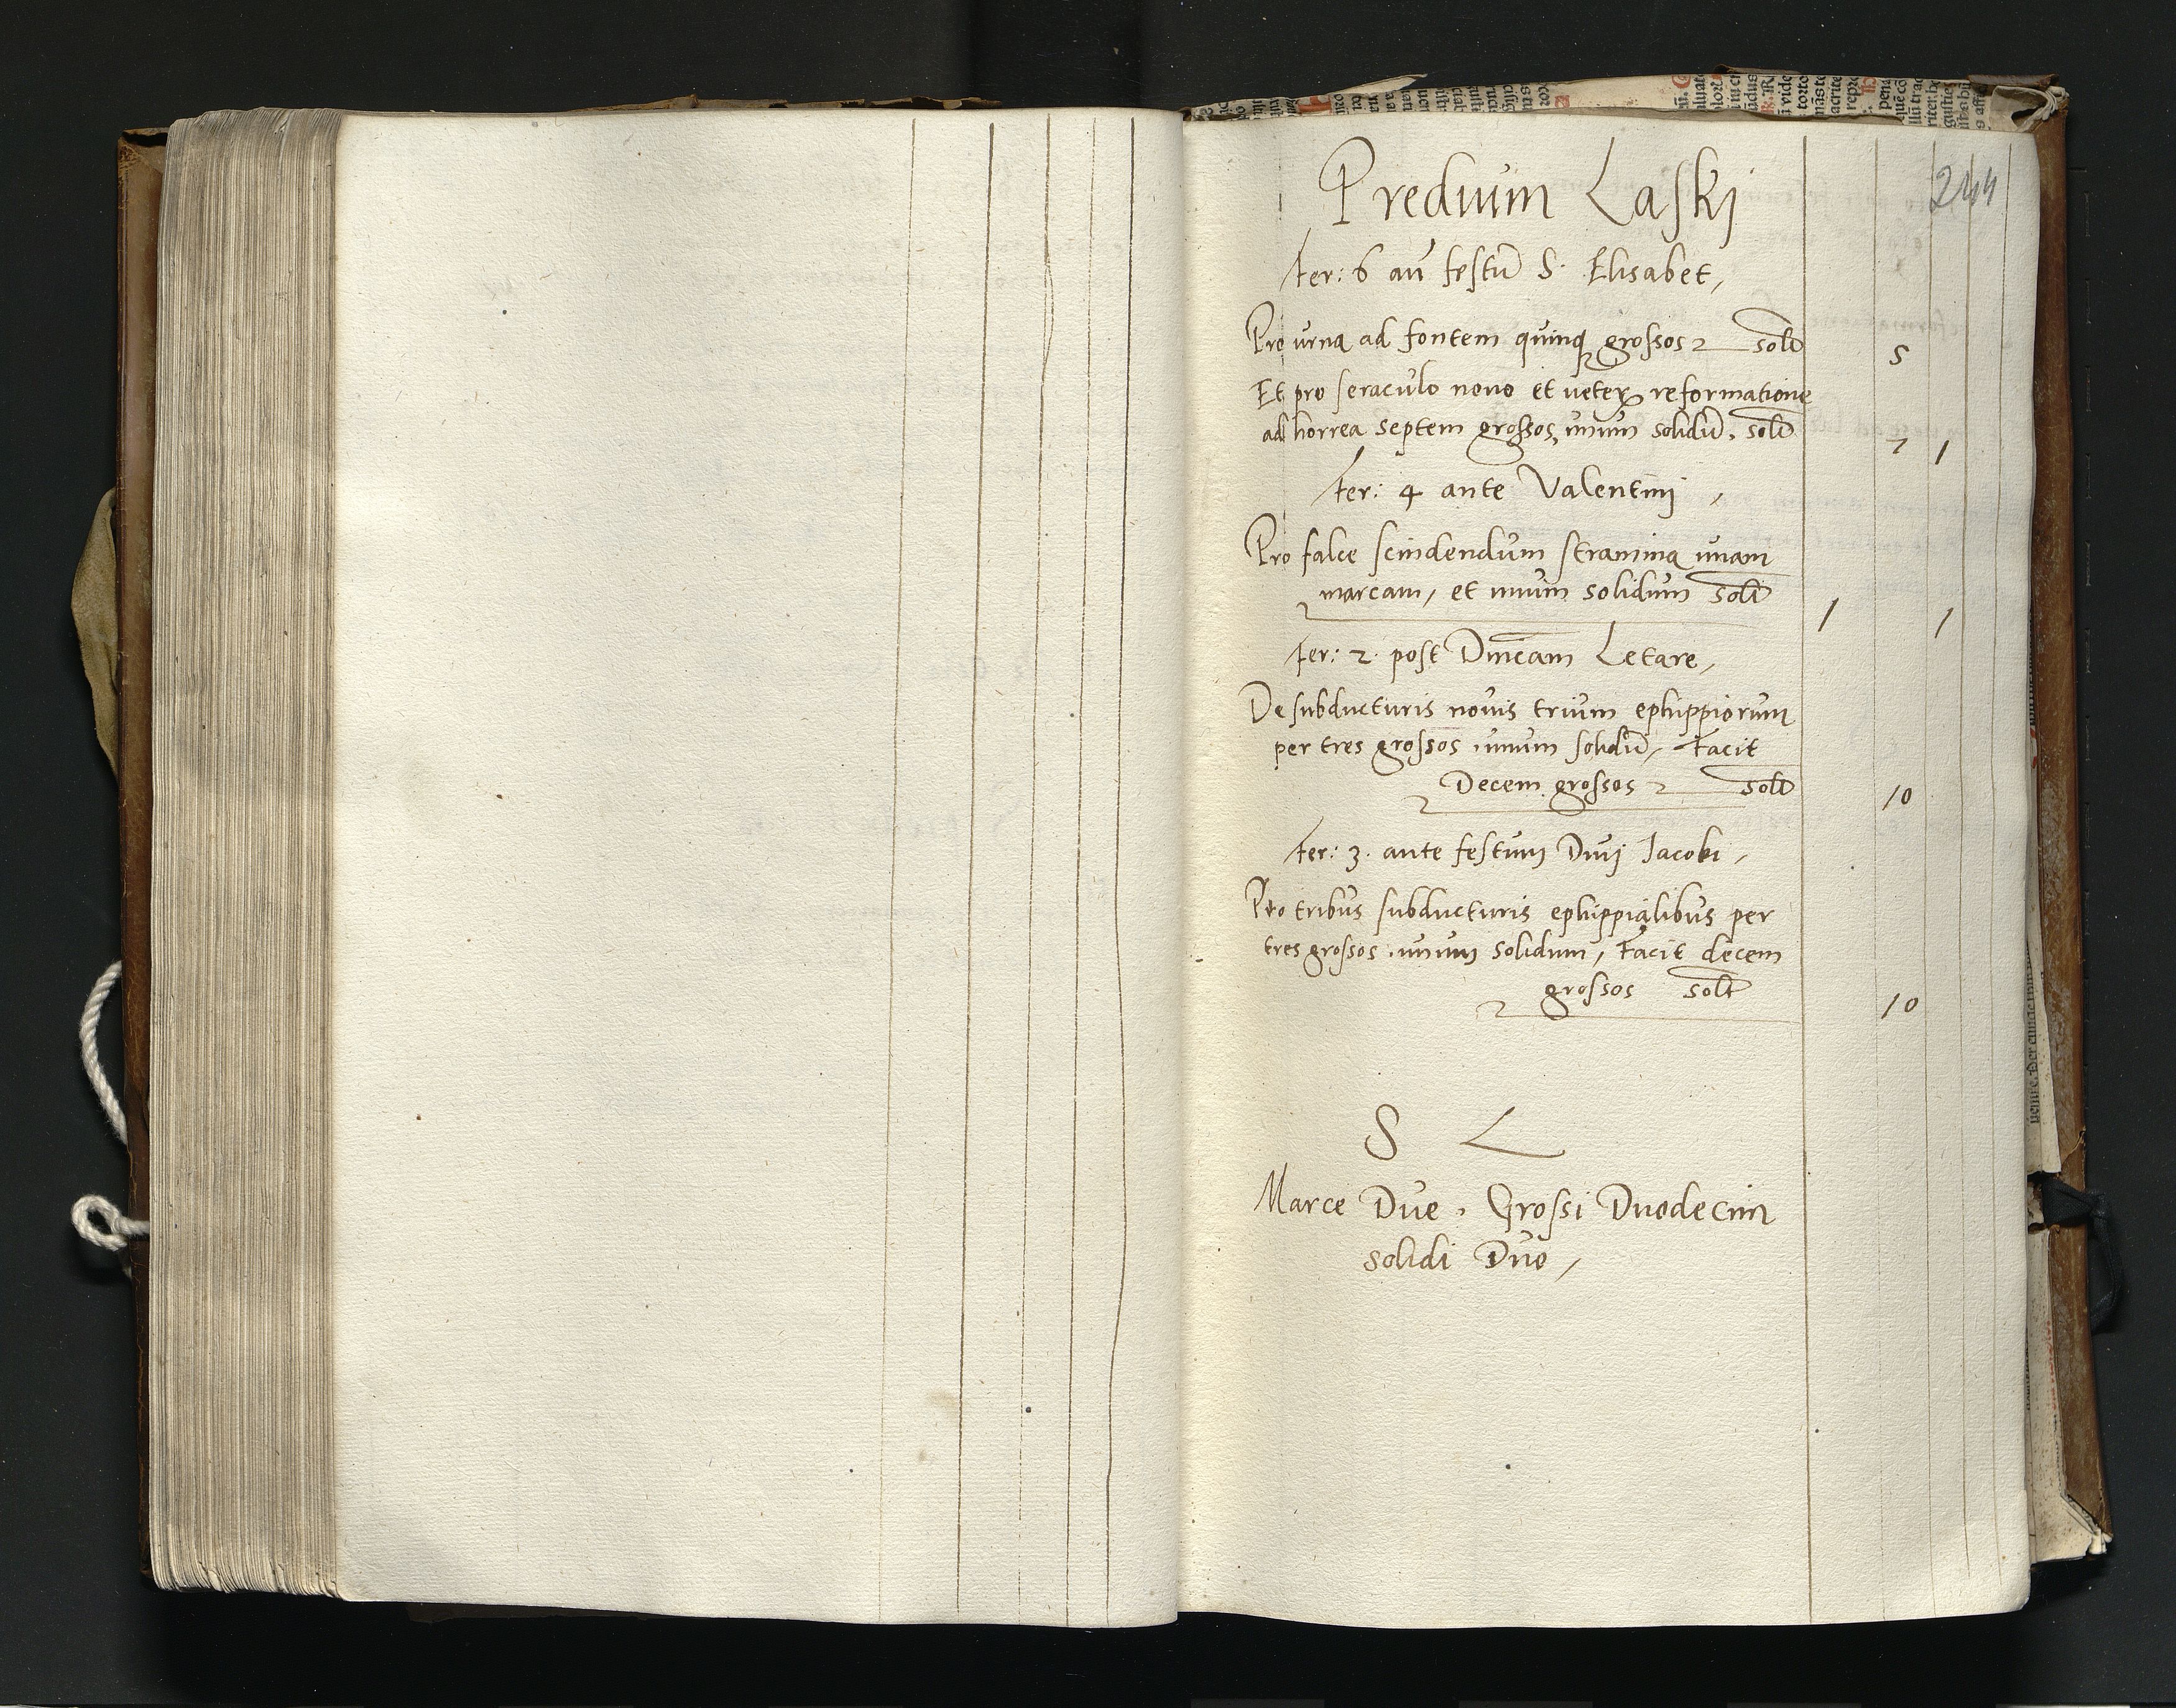 244
Predium Laskj
fer: 6 an̄ festū S. Elisabet,
Pro urna ad fontem quinq grossos solt̄ 5
Et pro seraculo nouo et veter reformatione
ad horrea septem grossos, unum solidū, solt̄ 7 1
fer: 4 ante Valentinj,
Pro falce scindendum stramina unam
marcam, et unum solidum solt̄ 1 1
fer: 2. post Dn̄icam Letare,
De subducturis nouis trium ephippiorum
per tres grossos, unum solidū, Facit
Decem grossos solt̄ 10
fer: 3. ante festum Diuj Jacobi,
Pro tribus subducturis ephippialibus per
tres grossos, unum solidum, Facit decem
grossos solt̄ 10
S L
Marce Due, Grossi Duodecim
solidi Duo,